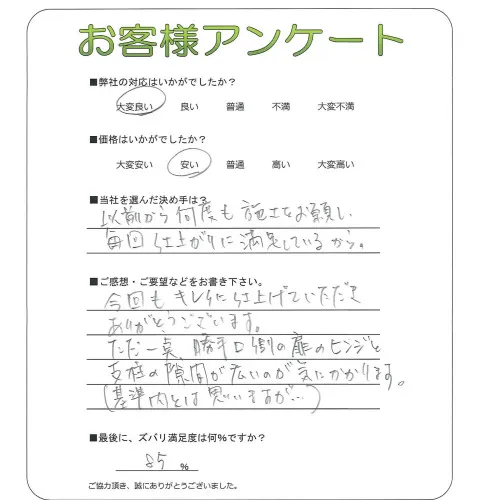 お客様アンケート
■弊社の対応はいかがでしたか?
大変良い 良い 普通 不満 大変不満
■価格はいかがでしたか?
大変安い 安い 普通 高い 大変高い
■当社を選んだ決め手は?
以前から何度も施工をお願いし
毎回仕上がりに満足しているから。
■ご感想・ご要望などをお書き下さい。
今回もキレイに仕上げていただき
ありがとうございます。
ただ一点、勝手口側の扉のヒンジと
支柱の隙間が広いのが気にかかります。
(基準内とは思いますが…)
■最後に、ズバリ満足度は何%ですか?
85 %
ご協力頂き、誠にありがとうございました。